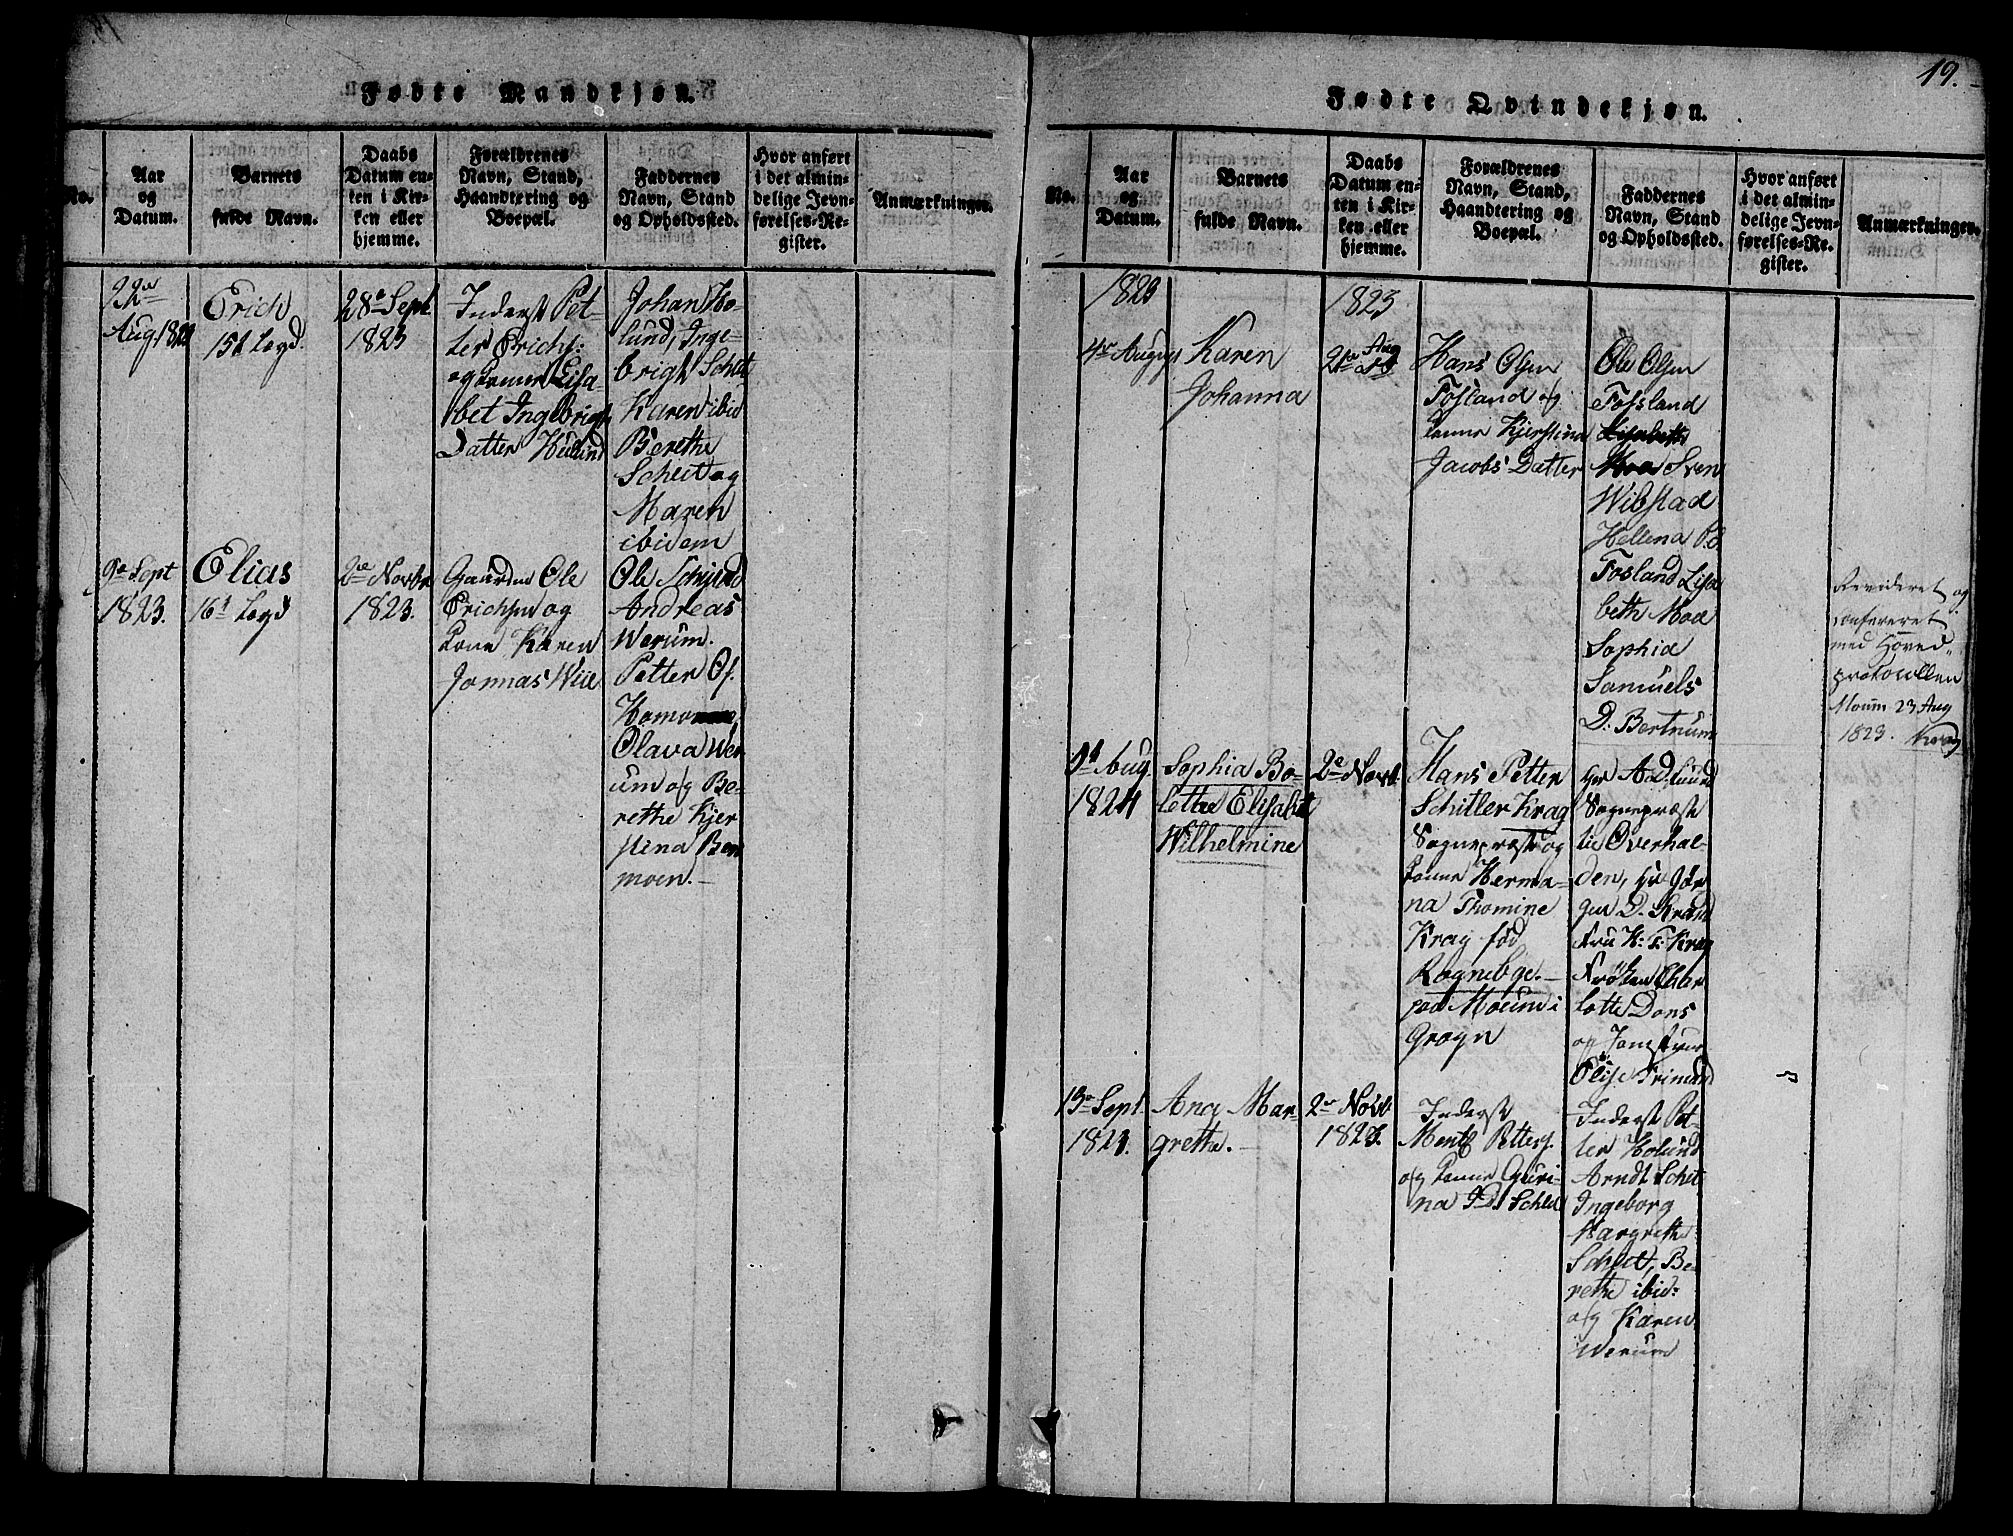 19.
Fødte Mandkjøn.
No.
Aar
og
Datum.
Barnets
fulde Navn.
Daabs
Datum en-
ten i Kir-
ken eller
hjemme.
Forældrenes
Navn, Stand,
Haandtering og
Boepæl.
Faddernes
Navn, Stand
og Opholdssted.
Hvor anført
i det almin-
delige Jevn-
førelses-Re-
gister.
Anmærkninger.
22de
Aug. 1823
Erich
15t Legd.
28e Sept
1823
Inderst Pet-
ter Erichs.
og Kone Elisa
bet Ingebrigt
Datter Hølund
Johan Ho-
lund, Inge-
brigt Scheet
Karen ibid
Berethe
Scheet og
Maren
ibidem
9de Sept
1823.
Elias
16t Legd
2de Novbr
1823.
Gaardmd Ole
Erichsen og
Kone Karen
Jonnas Wiie
Ole Schiünd
Andreas
Werum.
Petter Of.
Homo
Olava Wer
um og Be-
rethe Kjer
stina Bem
moen.
Fødte Qvindekjøn.
No.
Aar
og
Datum.
Barnets
fulde Navn.
Daabs
Datum en-
ten i Kir-
ken eller
hjemme.
Forældrenes
Navn, Stand,
Haandtering og
Boepæl.
Faddernes
Navn, Stand
og Opholdssted.
Hvor anført
i det almin-
delige Jevn-
førelses-Re-
gister.
Anmærkninger.
1823
4de August
Karen
Johanna
1823
21de Aug
Hans Olsen
Fosland og
Kone Kjerstina
Jacobs Datter
Ole Olsen
Fossland
Lisabeth
Moa Sven
Wibstad
Hellena P.d.
Fosland Lisa
beth Moa
Sophia
Samuels
D. Bertnum
Revideret og
confereret
med Hoved-
protocollen
Moum 23 Aug
1823. Krag
9d Aug
1824
Sophia Bo-
lette Elisabet
Wilhelmine
2de Novb
Hans Petter
Schitler Krag
Sognepræst og
Kone Herma-
na Thomine
Krag fød
Rogneb ge.
paa Moum i
Grogn
Hr A. D. Lund
Sognepræst
til Overhal-
den, Hr Jør
gen D.
Fru H: T: Krag
Frøken Char
lotte Dons
og Jomfrue
Elise
13de Sept
1823.
Ana Mar-
grethe.
2de Novb
1823.
Inderst
Mentz Petters.
og Kone Guri-
na I D Scheet
Inderst Pet-
ter Holund
Arndt Scheet
Ingeborg
Margrethe
Scheet, Be-
rethe ibid:
og Karen
Werum